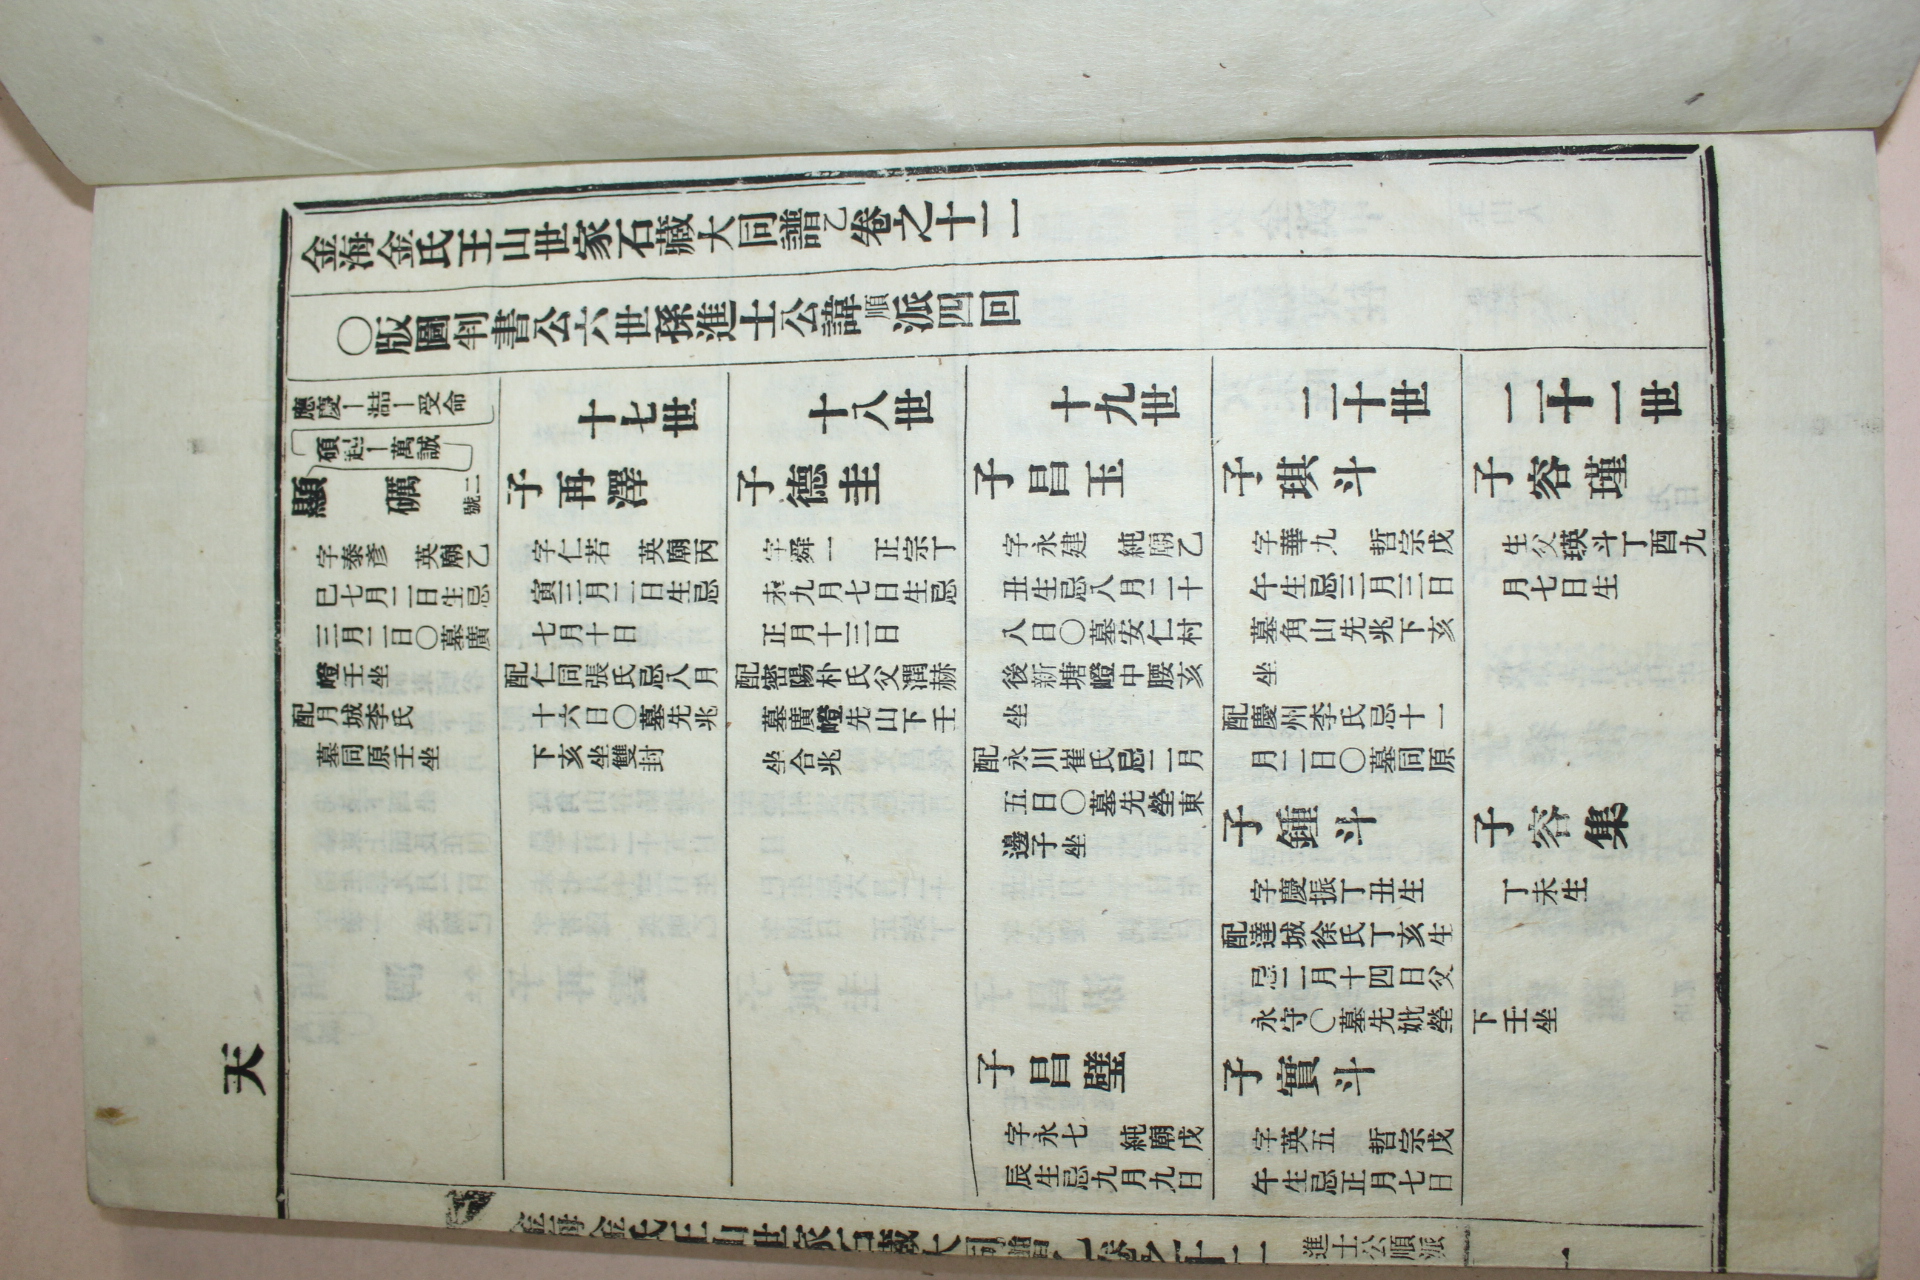 金海金氏王山世家石藏大同譜乙卷之十二
〇版圖判書公六世孫進士公諱順派四回
應慶 喆 受命
碩起 萬誠
顯 礪 二號
字泰彥 英廟乙
巳七月二日生忌
三月二日〇墓廣
嶝壬坐
配月城李氏
墓同原壬坐
十七世
子再澤
字仁若 英廟丙
寅三月二日生忌
七月十日
配仁同張氏忌八月
十六日〇墓先兆
下亥坐雙封
十八世
子德圭
字舜一 正宗丁
未九月七日生忌
正月十三日
配密陽朴氏父潤赫
墓廣嶝先山下壬
坐合兆
十九世
子昌玉
字永建 純廟乙
丑生忌八月二十
八日〇墓安仁村
後新塘嶝中腰亥
坐
配永川崔氏忌二月
五日〇墓先塋東
邊子坐
子昌璧
字永七 純廟戊
辰生忌九月九日
二十世
子琪斗
字華九 哲宗戊
午生忌三月三日
墓角山先兆下亥
坐
配慶州李氏忌十一
月二日〇墓同原
子鍾斗
字慶振丁丑生
配達城徐氏丁亥生
忌二月十四日父
永守〇墓先妣塋
下壬坐
子實斗
字英五 哲宗戊
午生忌正月七日
二十一世
子容瑾
生父瑛斗丁酉九
月七日生
子容集
丁未生
天
金海金氏王山世家石藏大同譜乙卷之十二 進士公順派 一